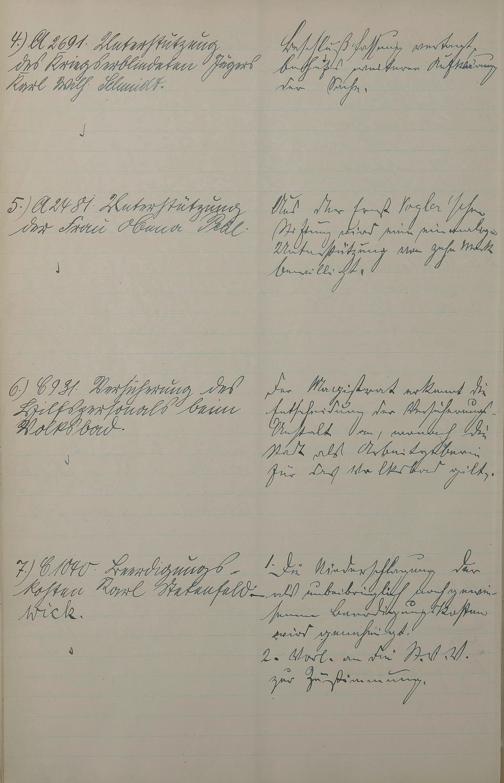 4.) A 2691. Unterstützung
des Kriegserblindeten Jägers
Karl Wilh Schmidt.
Beschlußfassung vertagt,
behufs weiterer Aufklärung
der Sache.
5.) A 2481. Unterstützung
der Frau
Aus der Ernst Vogler'schen
Stiftung wird eine einmalige
Unterstützung von zehn Mark
bewilligt.
6.) C 931. Versicherung des
Hilfspersonals beim
Volksbad.
Der Magistrat erkennt die
Entscheidung der Versicherungs-
Anstalt an, wonach die
Stadt als Arbeitgeberin
für das Volksbad gilt.
7.) C 1040 Beerdigungs-
kosten Karl Stekenfeld-
wick.
1. Die Niederschlagung der
als unbeibringlich nachgewie-
senen Beerdigungskosten
wird genehmigt.
2. Vorl. an die St. V. V.
zur Zustimmung.